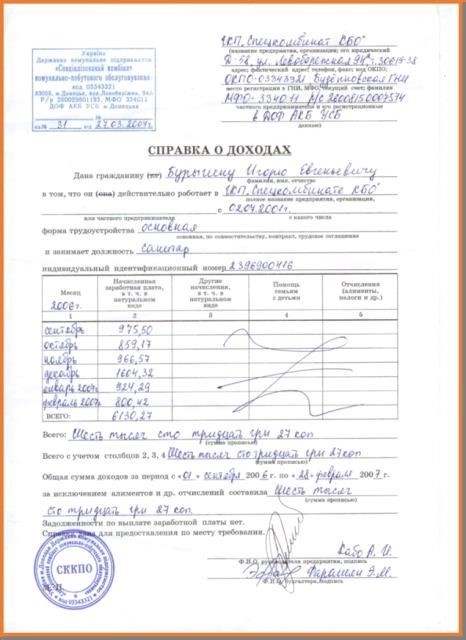 Україна
Державне комунальне підприємство
«Спеціалізований комбінат
комунально-побутового обслуговування»
код 03343321
83058, м.Донецьк, вул.Лівобережна, 94а
ДОФ АКБ УСБ м.Донецька
№ 31 від 27.03.2007г.
"СКП „Спецкомбинат КБО"
(название предприятия, организации; его юридический
Д-58, ул. Левобережная 94"а", т. 300-15-38
адрес; фактический адрес; телефон, факс; код ОКПО;
ОКПО-03343321 Будённовская ГНИ
место регистрации в ГНИ, МФО, текущий счет; фамилия
МФО-334011 Р/С
частного предпринимателя и его регистрационные
в ДОФ АКБ УСБ
данные)
СПРАВКА О ДОХОДАХ
Дана гражданину (ке) Бурыгину Игорю Евгеньевичу
фамилия, имя, отчество
в том, что он (она) действительно работает в "СКП „Спецкомбинате КБО"
полное название предприятия, организации,
с 02.04.2001г.
или частного предпринимателя с какого числа
форма трудоустройства основная
основная, по совместительству, контракт, трудовое соглашение
и занимает должность санитар
индивидуальный идентификационный номер 2396900416
Месяц Начисленная заработная плата, в т. ч. в натуральном виде Другие начисления, в т. ч. в натуральном виде Помощь семьям с детьми Отчисления (алименты, налоги и др.)
2006г.
1 2 3 4 5
сентябрь 975,50
октябрь 859,17
ноябрь 966,57
декабрь 1604,32
январь 2007г. 924,29
февраль 2007г. 800,42
ВСЕГО: 6130,27
(сумма прописью)
Всего: Шесть тысяч сто тридцать грн 27 коп
(сумма прописью)
Всего с учетом столбцов 2, 3, 4 Шесть тысяч сто тридцать грн 27 коп
(сумма прописью)
Общая сумма доходов за период с «01» сентября 2006 г. по «28» февраля 2007 г.
за исключением алиментов и др. отчислений составила Шесть тысяч
(сумма прописью)
сто тридцать грн 27 коп.
Задолженности по выплате заработной платы нет.
Справка дана для предоставления по месту требования.
Кабо А. И.
Ф.И.О. руководителя предприятия, подпись
Э.М.
Ф.И.О. бухгалтера, подпись
СККПО
код 03343321